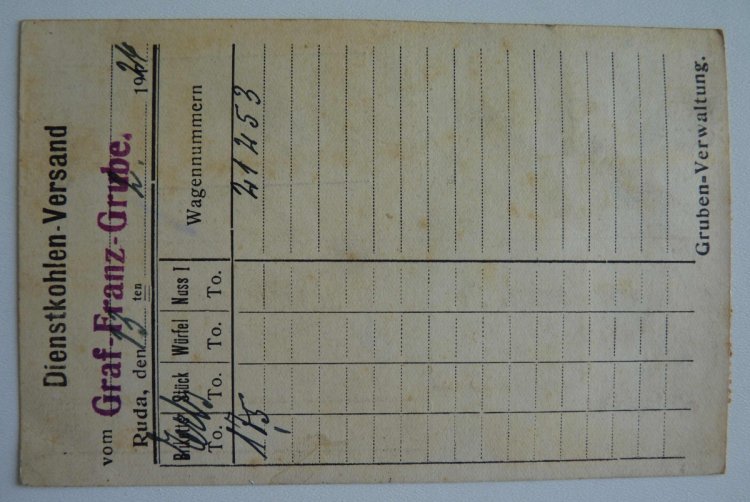 Dienstkohlen-Versand
vom Graf-Franz-Grube.
Ruda, den 13 ten 2. 1924
Stück Würfel Nuss I Wagennummern
To. To. To. To.
17,5 21253
Gruben-Verwaltung.